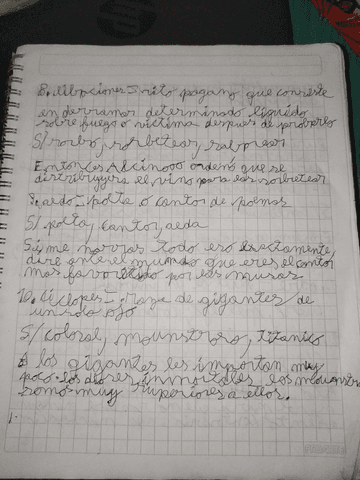 8. libaciones = rito pagano que consiste
en derramar determinado líquido
sobre fuego o víctima después de probarlo
S/ sorbo, sorbetear, saborear
Entonces Alcinoo ordenó que se
distribuyera el vino para los sorbetear
9. aedo = poeta o cantor de poemas
S/ poeta, cantor, aeda
Si me narras todo eso exactamente,
diré ante el mundo que eres el cantor
mas favorecido por las musas
10. Cíclopes = raza de gigantes de
un solo ojo
S/ colosal, mounstroso, titanico
A los gigantes les importan muy
poco los dioses inmortales los mounstros
somo muy superiores a ellos.